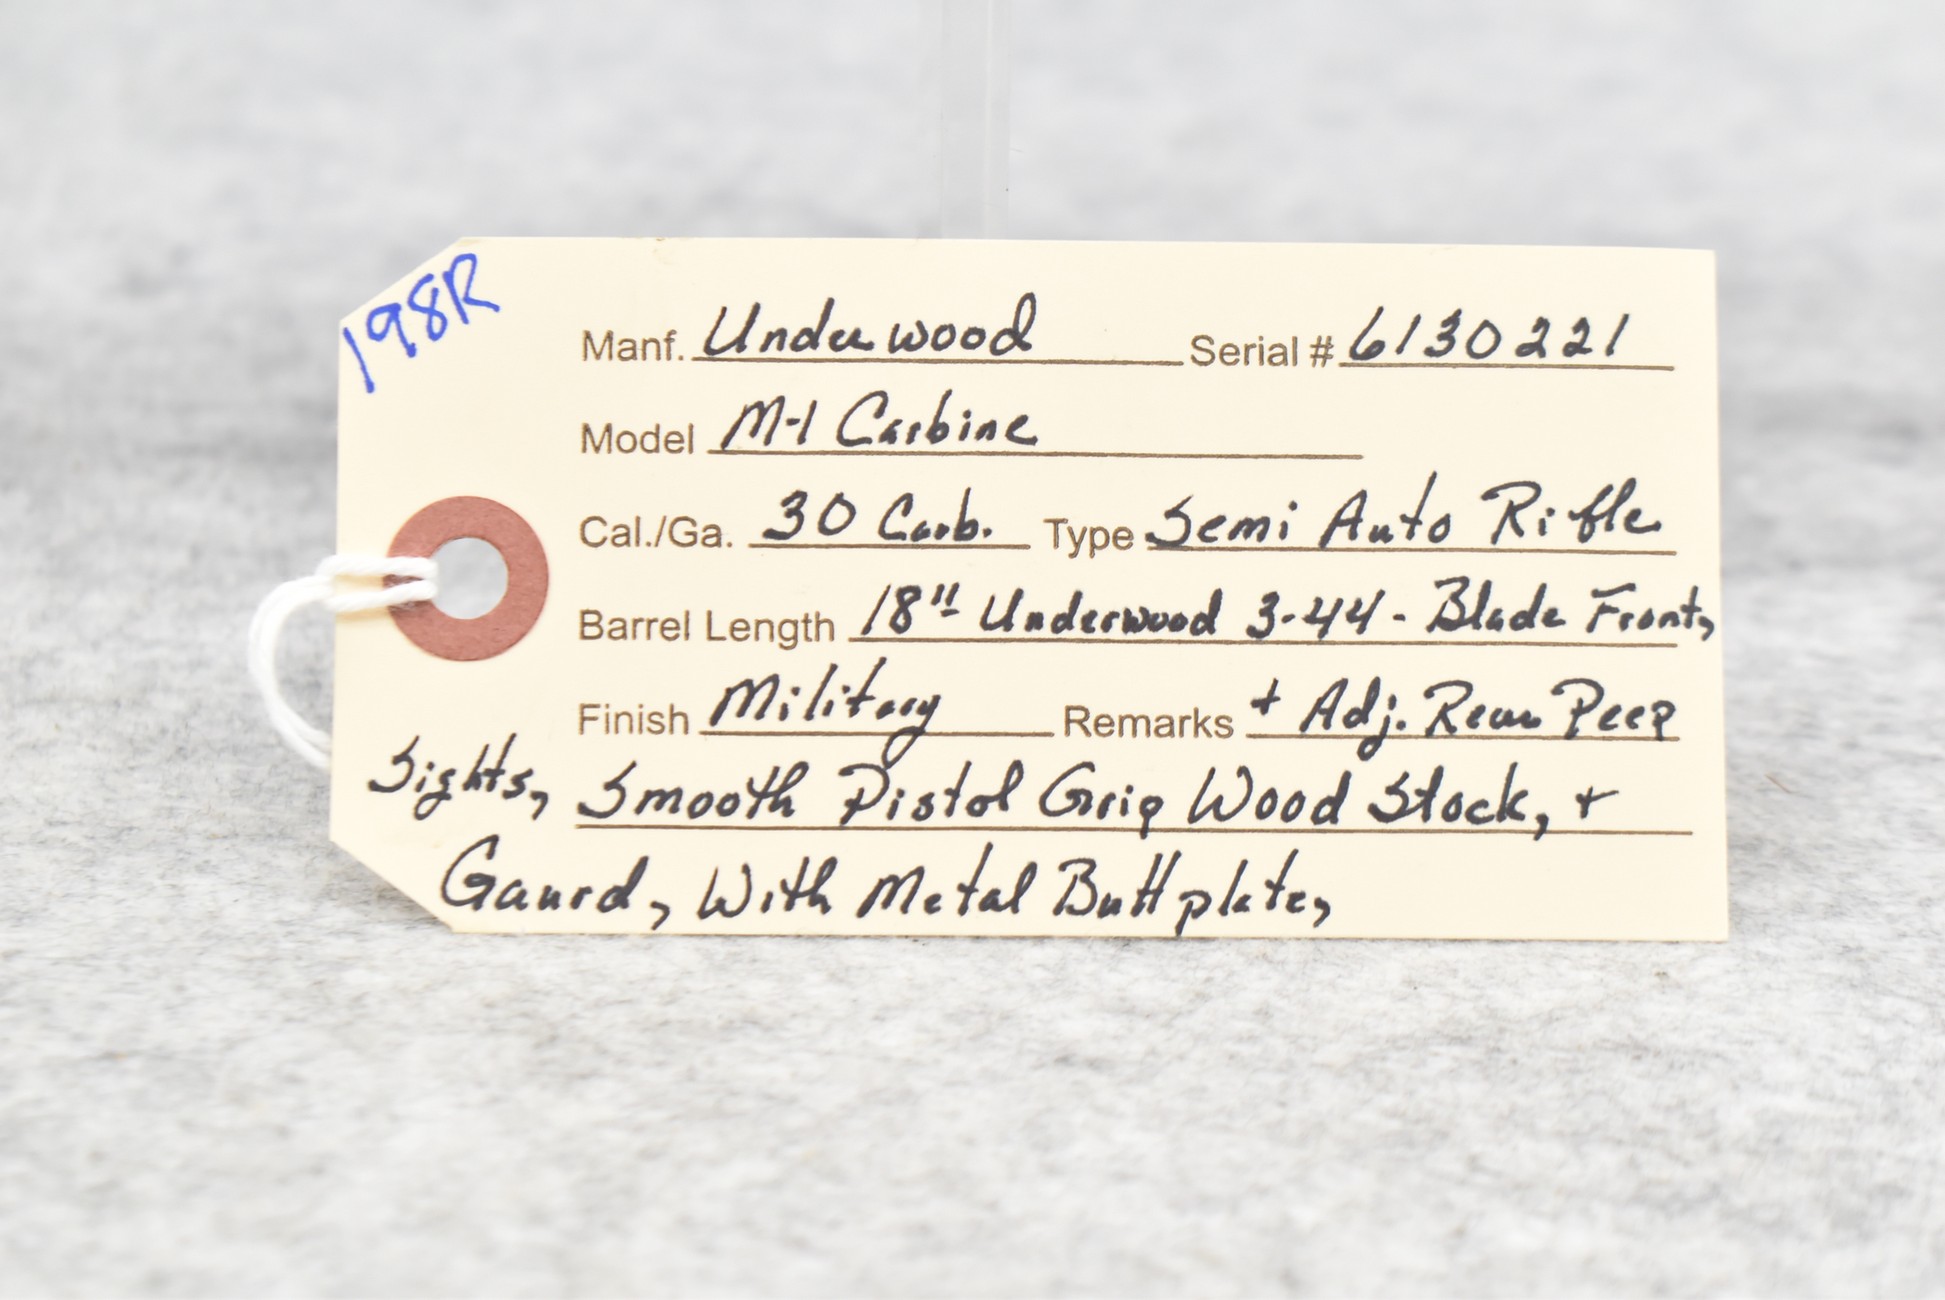 198R
Manf. Underwood Serial # 6130221
Model M-1 Carbine
Cal./Ga. 30 Carb. Type Semi Auto Rifle
Barrel Length 18" Underwood 3-44 - Blade Front,
Finish Military Remarks + Adj. Rear Peep
Sights, Smooth Pistol Grip Wood Stock, +
Gaurd, With Metal Buttplate,